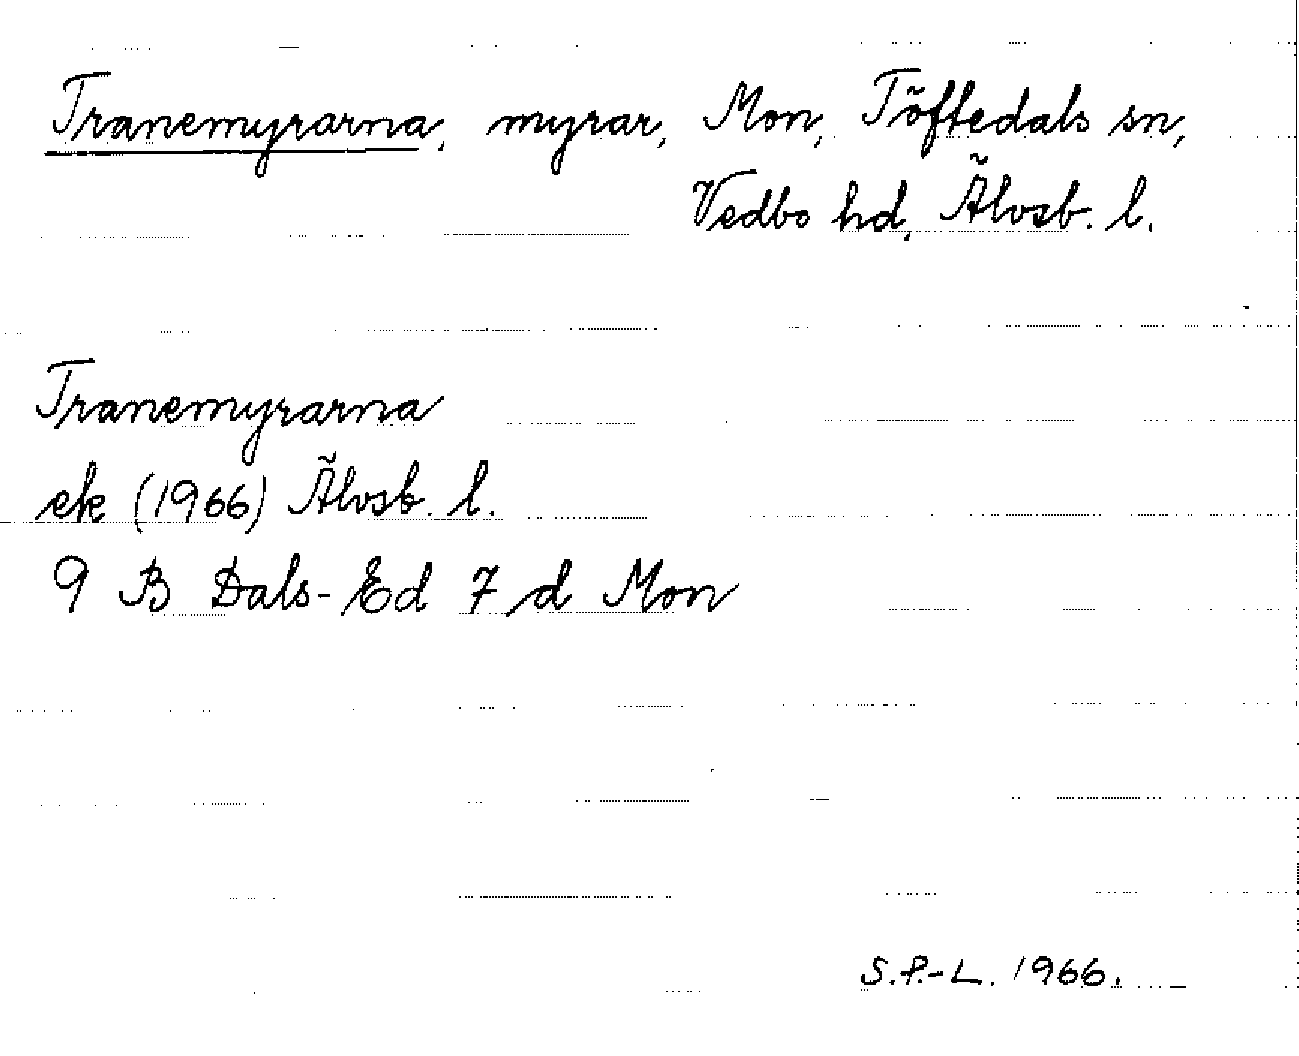 Tranemyrarna, myrar, Mon, Töftedals sn,
Vedbo hd, Älvsb. l.
Tranemyrarna
ek (1966) Älvsb. l.
9 B Dals-Ed 7 d Mon
S.P.-L. 1966.